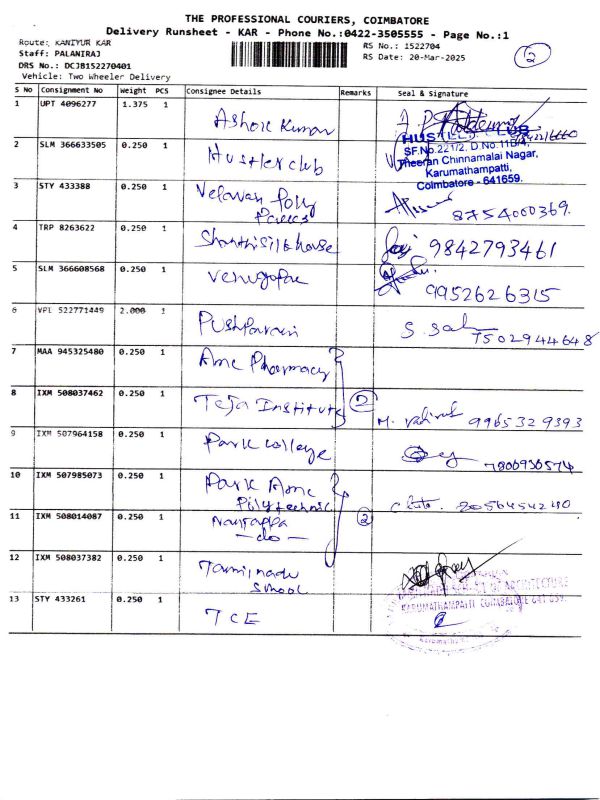 THE PROFESSIONAL COURIERS, COIMBATORE
Delivery Runsheet - KAR - Phone No.:0422-3505555 - Page No.:1
Route: KANIYUR KAR
RS No.: 1522704
2
Staff: PALANIRAJ
RS Date: 20-Mar-2025
DRS No.: DCJB152270401
Vehicle: Two Wheeler Delivery
S No Consignment No Weight PCS Consignee Details Remarks Seal & Signature
1 UPT 4096277 1.375 1 Ashok Kumar
2 SLM 366633505 0.250 1 Hustler club
HUSTLER CLUB
SF.No.221/2, D.No.11B/4,
Theeran Chinnamalai Nagar,
Karumathampatti,
Coimbatore - 641659.
3 STY 433388 0.250 1 Velavan Poly 8754000369.
4 TRP 8263622 0.250 1 Shanthi silk house 9842793461
5 SLM 366608568 0.250 1 Venugopal 9952626315
6 VPL 522771449 2.000 1 7502944648
7 MAA 945325480 0.250 1 Amc Pharmacy
8 IXM 508037462 0.250 1 Teja Institute 2 9965329393
9 IXM 507964158 0.250 1 Park college
10 IXM 507985073 0.250 1 Park Amc
Polytechnic
11 IXM 508014087 0.250 1 2
- do -
12 IXM 508037382 0.250 1 Tamilnadu
School
13 STY 433261 0.250 1 TCE
OF ARCHITECTURE
KARUMATHAMPATTI COIMBATORE 641 659.